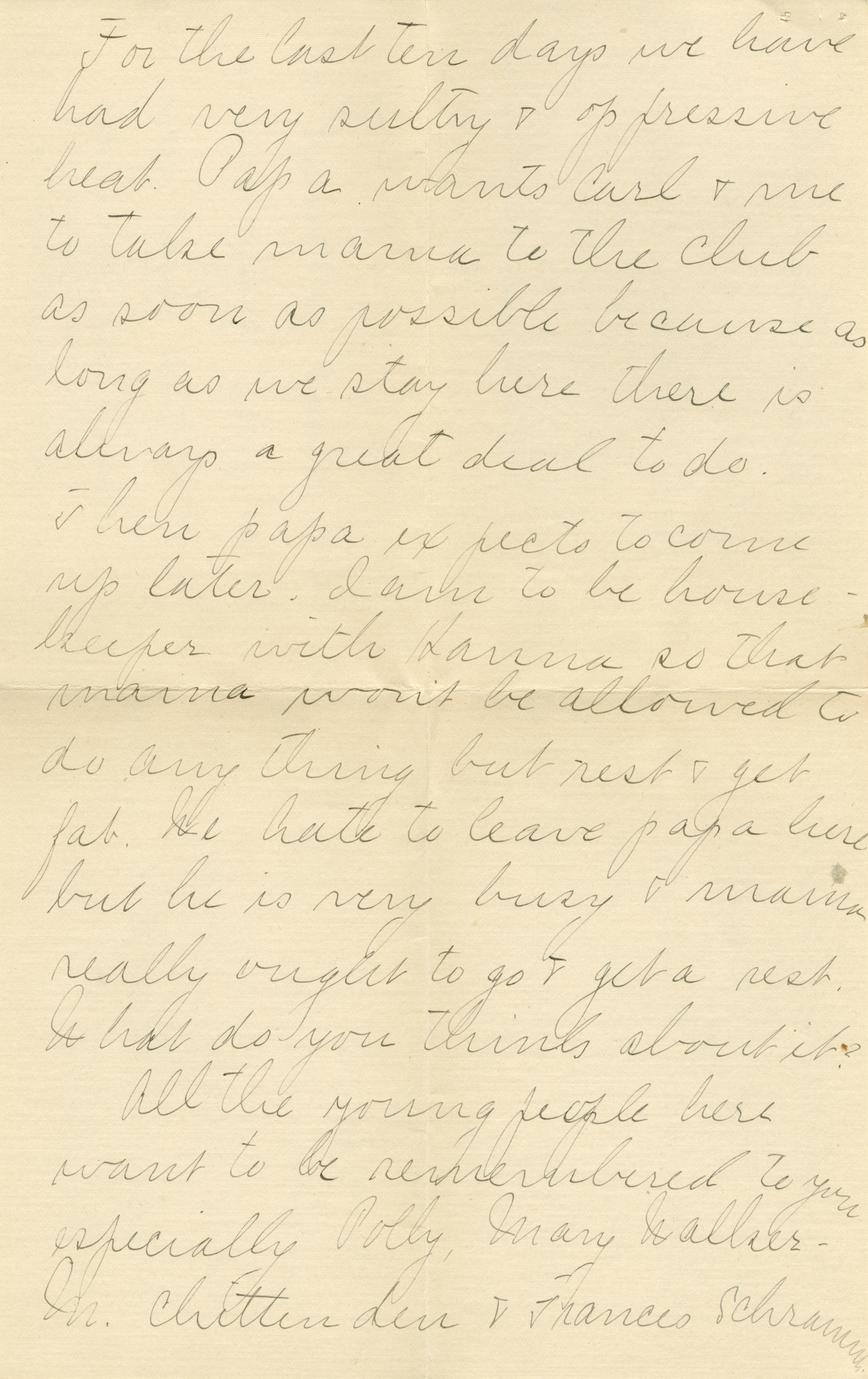 For the last ten days we have
had very sultry & oppressive
heat. Papa wants Carl & me
to take mama to the club
as soon as possible because as
long as we stay here there is
always a great deal to do.
Then papa expects to come
up later. I am to be house-
keeper with Hanna so that
mama won't be allowed to
do any thing but rest & get
fat. We hate to leave papa here
but he is very busy & mama
really ought to go & get a rest.
What do you think about it?
All the young people here
want to be remembered to you
especially Polly, Mary Walker-
M. Chittenden & Frances Schramm.